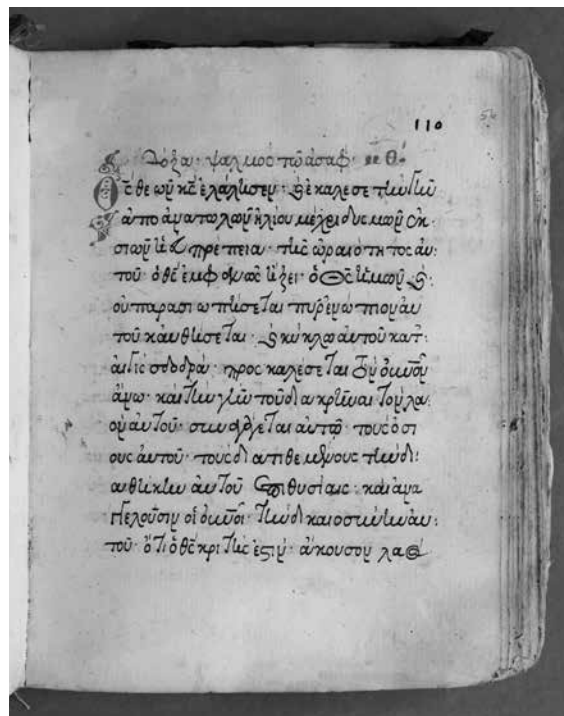 110
δόξα· ψαλμὸς τῶ ἀσάφ· μθ·
Θς θεῶν κς ἐλάλησεν· καὶ ἐκάλεσε τὴν γῆν
ἀπο ἀνατολῶν ἡλίου μέχρι δυσμῶν ἐκ
σιὼν ἡ εὐπρέπεια· τῆς ὡραιότητος αὐ
τοῦ· ὁ θς ἐμφανῶς ἥξει· ὁ Θς ἡμῶν καὶ
οὐ παρασιωπήσεται· πῦρ ἐνώπιον αὐ
τοῦ καυθήσεται· καὶ κύκλω αὐτοῦ κατ
αιγὶς σφοδρά· προς καλέσεται τὸν οὐνον
ἄνω· καὶ τὴν γῆν τοῦ διακρῖναι τὸν λα
ὸν αὐτοῦ· συναγάγεται αὐτῶ· τοὺς ὁσί
ους αὐτοῦ· τοὺς διατιθεμένους τὴν δι
αθήκην αὐτοῦ ἐπὶ θυσίαις· καὶ ἀνα
γγελοῦσιν οἱ οὐνοι· τὴν δικαιοσύνην αὐ
τοῦ· ὅτι ὁ θς κριτής ἐστιν· ἄκουσον λαὸ